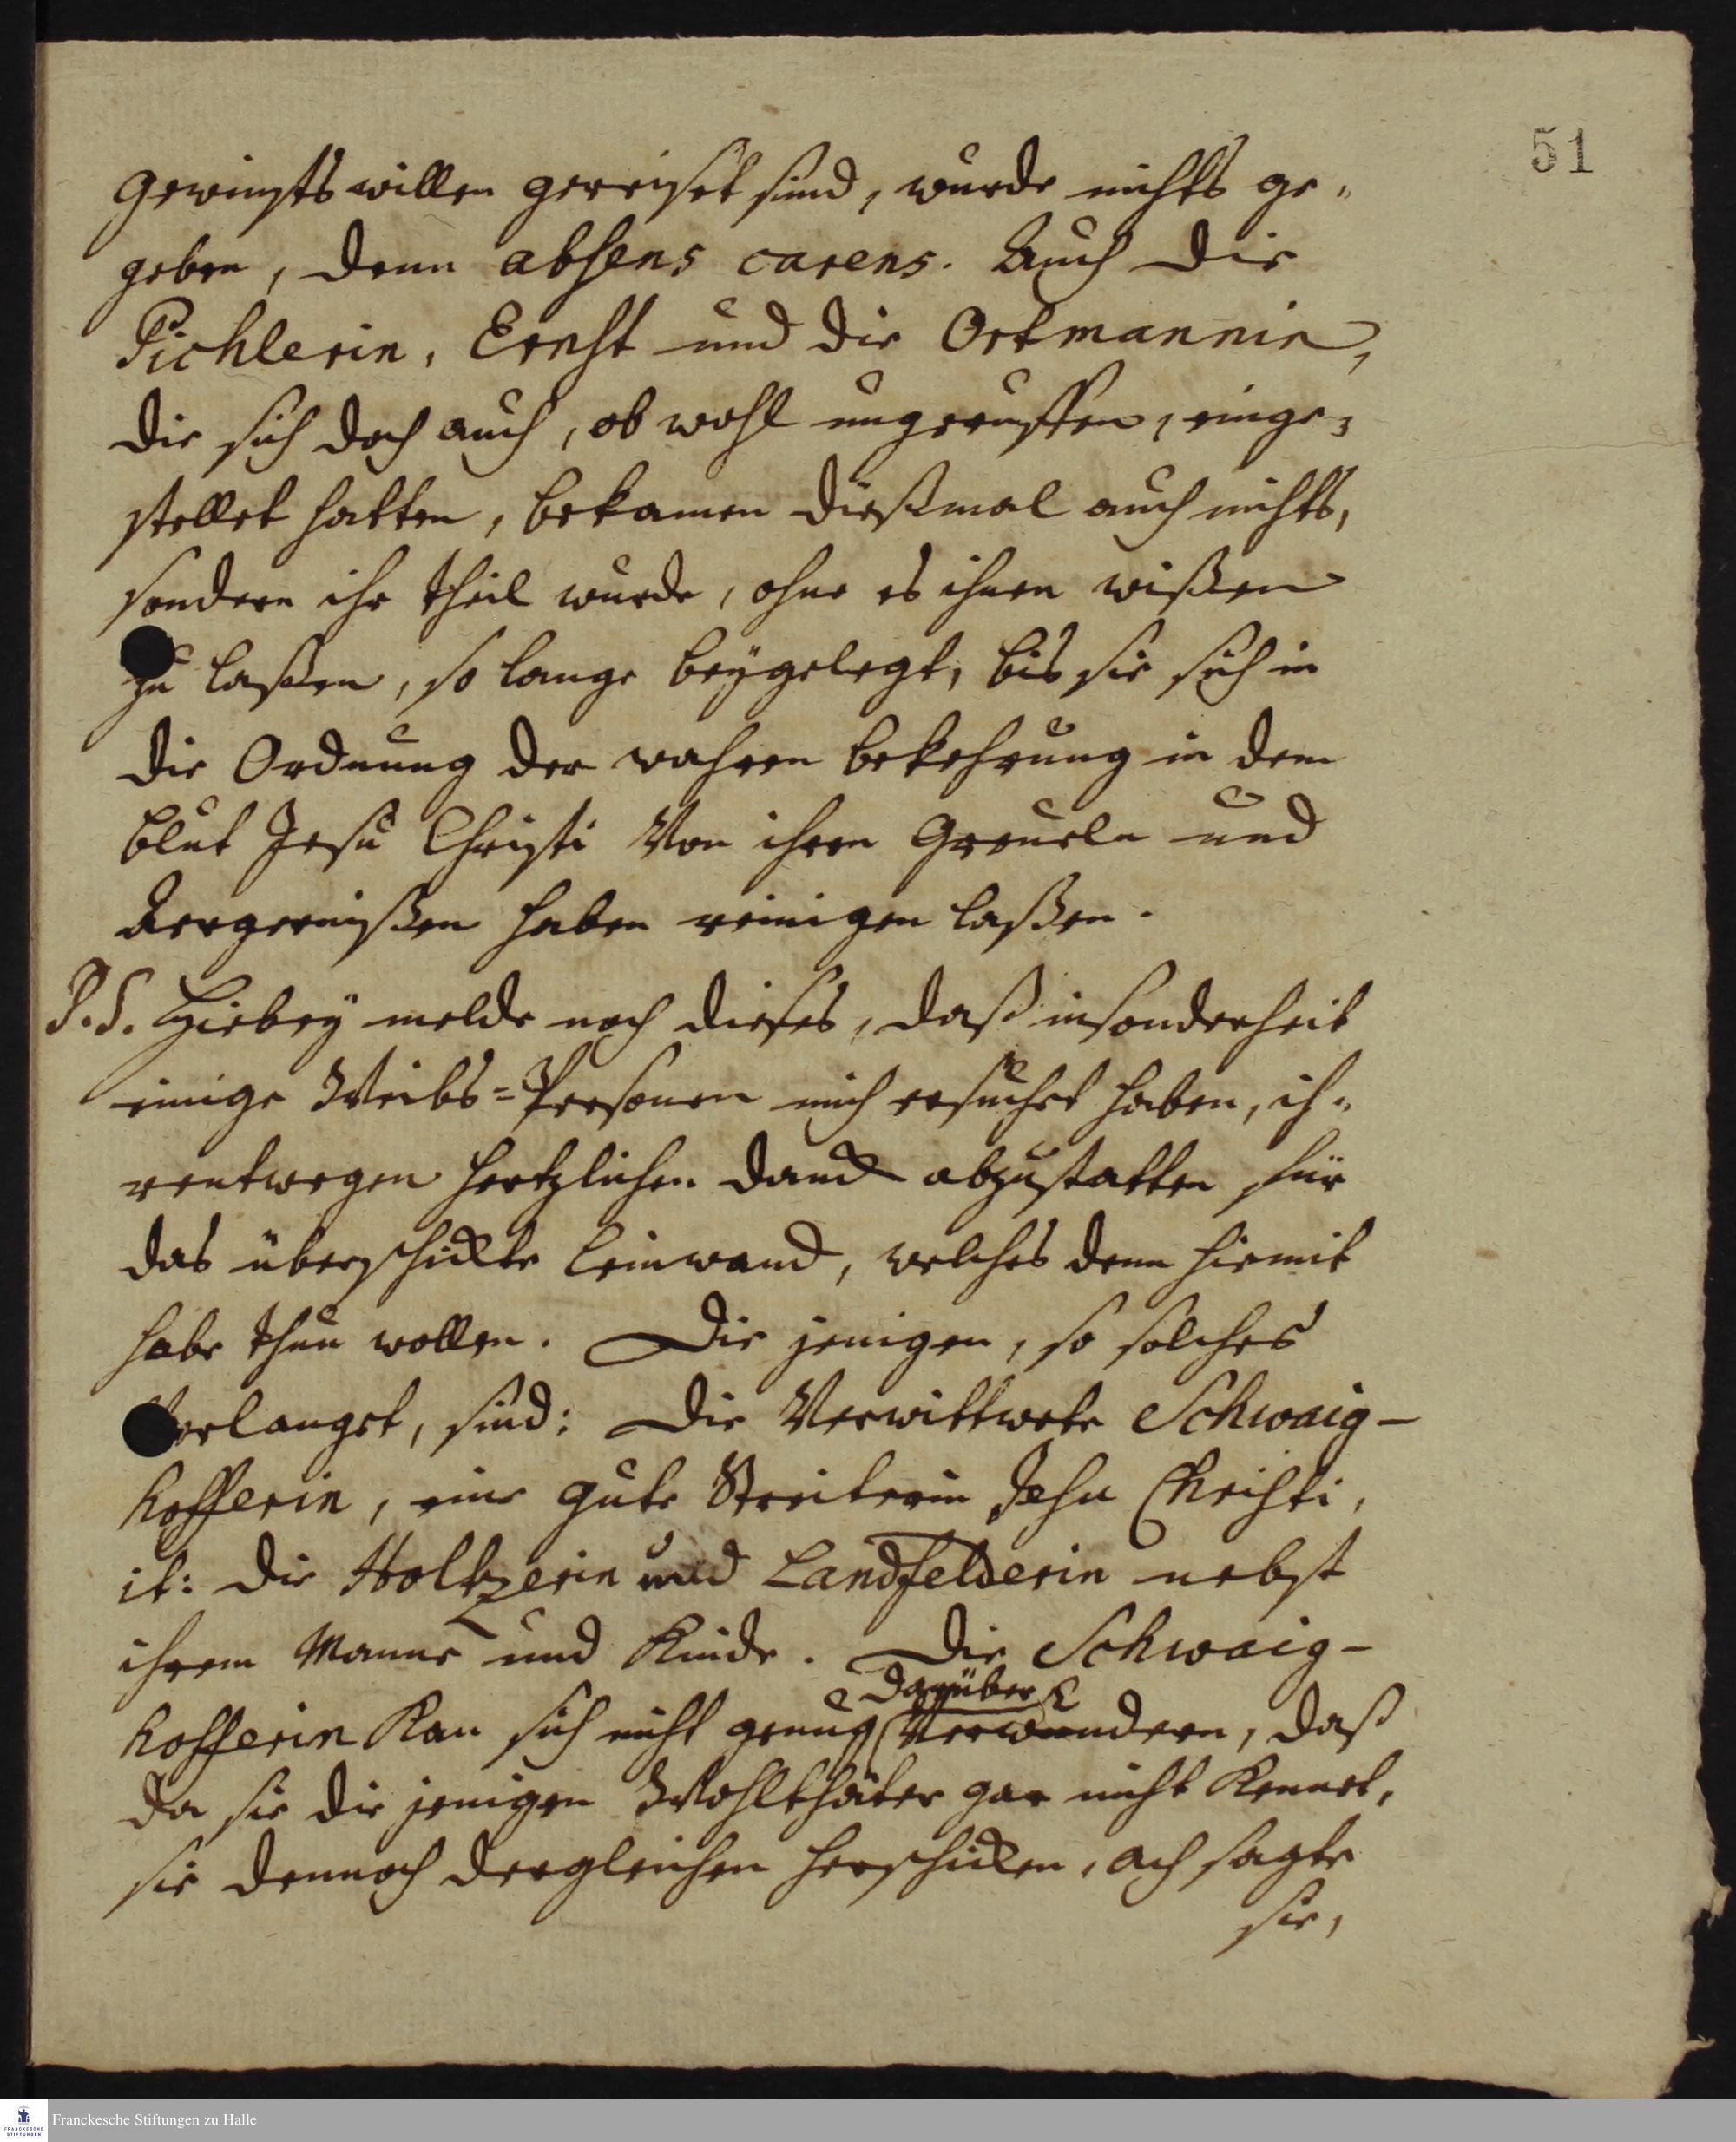 51
gewinsts willen gereiset sind, wurde nichts ge-
geben, denn absens carens. Auch die
Pichlerin, Ernst und die Ortmannin,
die sich doch auch, ob wohl ungeruffen, einge-
stellet hatten, bekamen dießmal auch nichts,
sondern ihr theil wurde, ohne es ihnen wißen
zu laßen, so lange beygelegt, bis sie sich in
die Ordnung der wahren bekehrung in dem
blut Jesu Christi Von ihren Greueln und
Aergernißen haben reinigen laßen.
P.S. Hiebey melde noch dieses, daß insonderheit
einige Weibs=Personen mich ersuchet haben, ih-
rentwegen hertzlichen danck abzustatten für
das überschickte Leinwand, welches denn hiemit
habe thun wollen. Die jenigen, so solches
Verlanget, sind: Die Verwittwete Schwaig-
hofferin, eine gute Streiterin Jesu Christi,
it: die Holtzerin und Landfelderin nebst
ihrem Manne und Kinde. Die Schwaig-
darüber
hofferin Kan sich nicht genug Verwundern, daß
da sie die jenigen Wohlthäter gar nicht Kennet,
sie dennoch dergleichen herschicken, ach sagte
sie,
Franckesche Stiftungen zu Halle
FRANCKESCHE
STIFTUNGEN